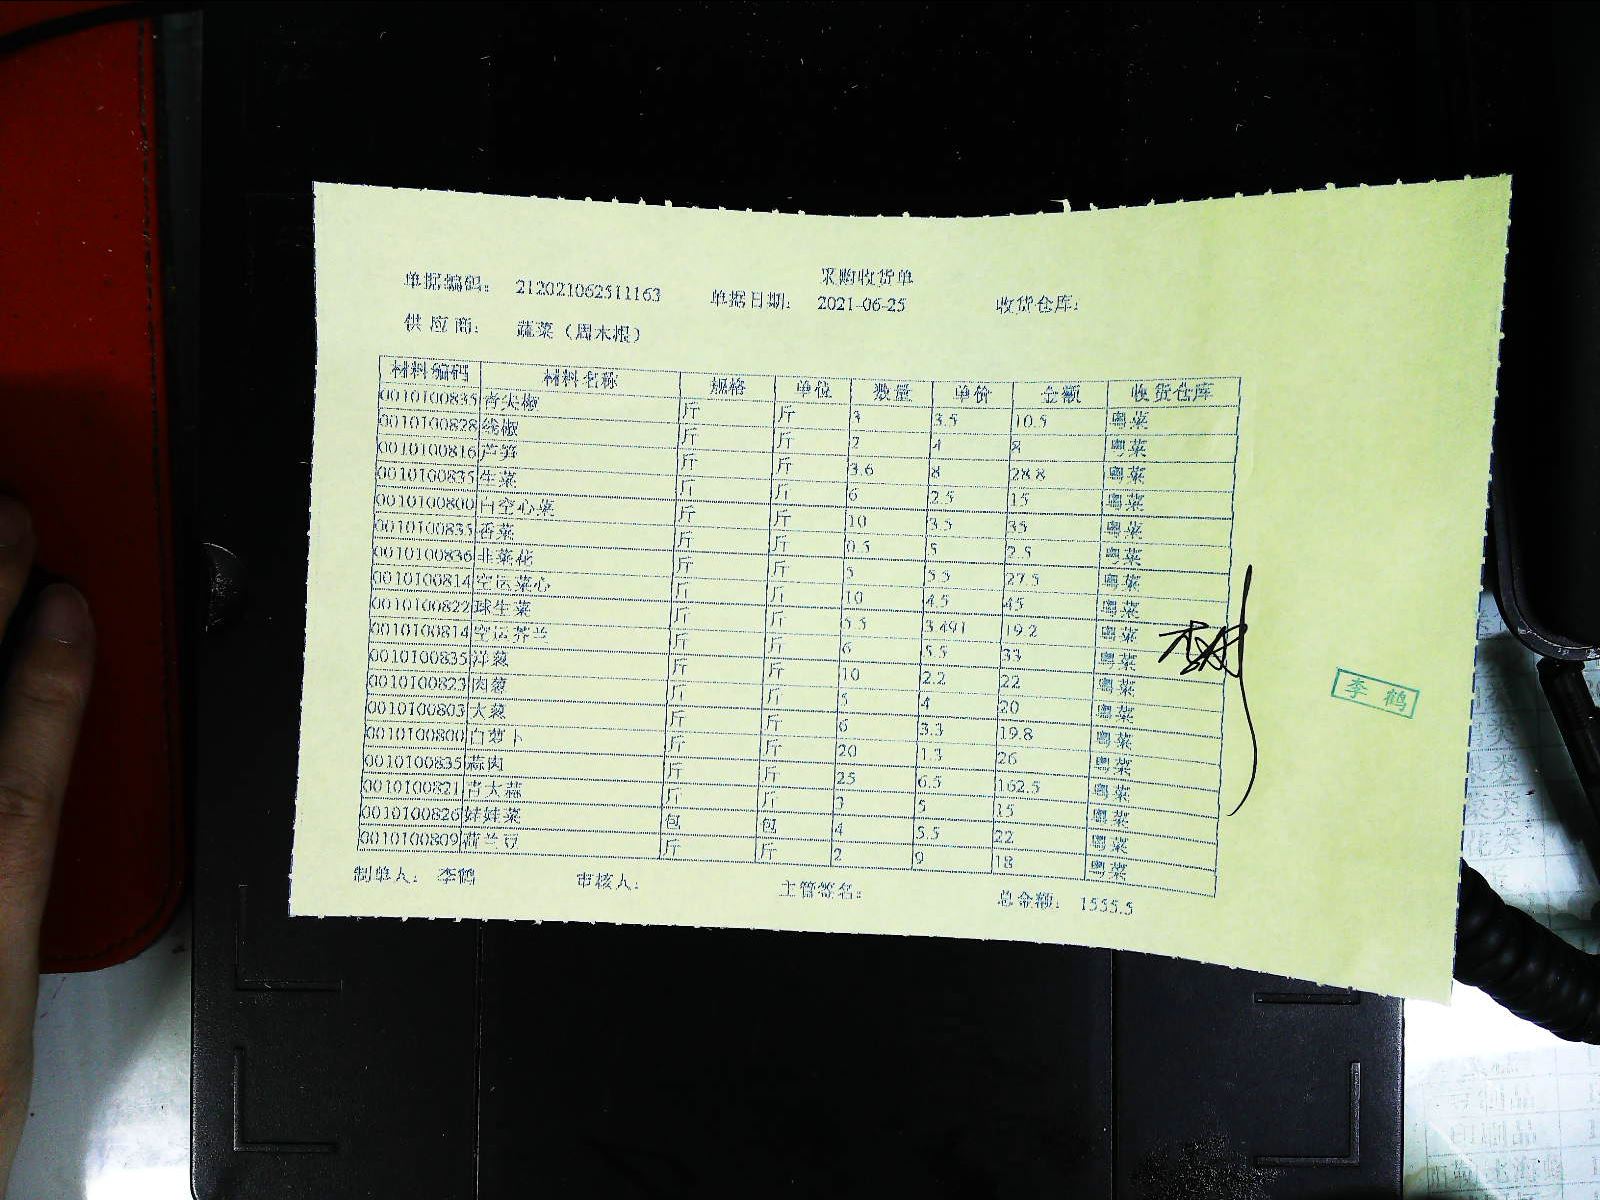 采购收货单
单据编码： 212021062511163 单据日期： 2021-06-25 收货仓库：
供 应 商： 蔬菜（周木根）
材料编码 材料名称 规格 单位 数量 单价 金额 收货仓库
0010100835 青尖椒 斤 斤 3 3.5 10.5 粤菜
0010100828 线椒 斤 斤 2 4 8 粤菜
0010100816 芦笋 斤 斤 3.6 8 28.8 粤菜
0010100835 生菜 斤 斤 6 2.5 15 粤菜
0010100800 白空心菜 斤 斤 10 3.5 35 粤菜
0010100835 香菜 斤 斤 0.5 5 2.5 粤菜
0010100836 韭菜花 斤 斤 5 5.5 27.5 粤菜
0010100814 空运菜心 斤 斤 10 4.5 45 粤菜
0010100822 球生菜 斤 斤 5.5 3.491 19.2 粤菜
0010100814 空运芥兰 斤 斤 6 5.5 33 粤菜
0010100835 洋葱 斤 斤 10 2.2 22 粤菜
0010100823 肉葱 斤 斤 5 4 20 粤菜
0010100803 大葱 斤 斤 6 3.3 19.8 粤菜
0010100800 白萝卜 斤 斤 20 1.3 26 粤菜
0010100835 蒜肉 斤 斤 25 6.5 162.5 粤菜
0010100821 青大蒜 斤 斤 3 5 15 粤菜
0010100826 娃娃菜 包 包 4 5.5 22 粤菜
0010100809 荷兰豆 斤 斤 2 9 18 粤菜
制单人： 李鹤 审核人： 主管签名： 总金额： 1555.5
李鹤